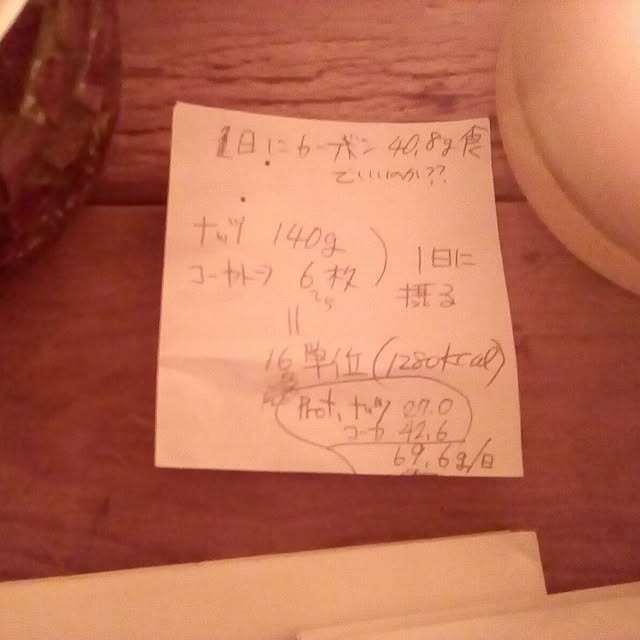 1日にカーボン 40.8g食
でいいのか??
ナッツ 140g
6枚
1日に
摂る
=
16単位(1280kcal)
Prot. ナッツ 27.0
コーヤ 42.6
69.6g/日